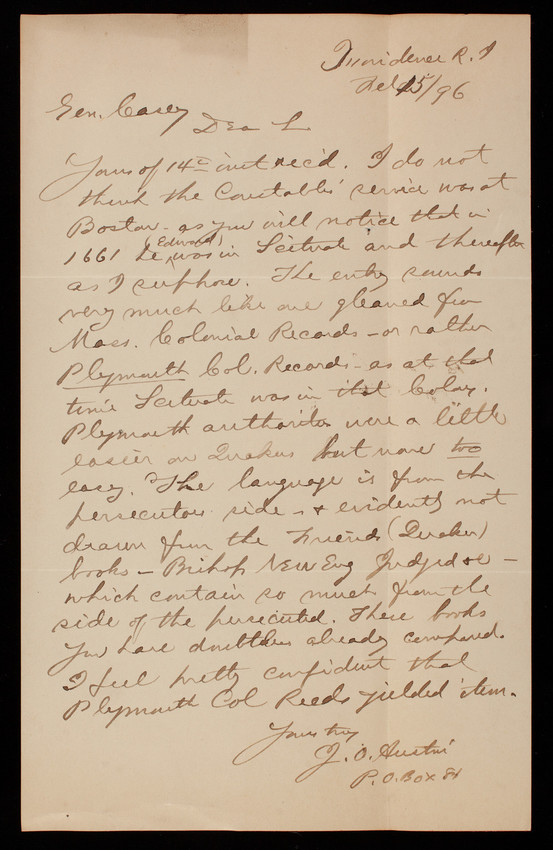 Providence R. I
Feb 15/96
Gen. Casey
Dear Sir
Yours of 14th inst rec'd. I do not
think the Constables' service was at
Boston - as you will notice that in
1661 he (Edward) was in Scituate and thereafter
as I suppose. The entry sounds
very much like one gleaned from
Mass. Colonial Records - or rather
Plymouth Col. Records - as at that
time Scituate was in that Colony.
Plymouth authorities were a little
easier on Quakers but none too
easy. The language is from the
persecutors side - & evidently not
drawn from the Friends (Quaker)
books - Bishop New Eng Judged &c -
which contain so much from the
side of the persecuted. These books
you have doubtless already compared.
I feel pretty confident that
Plymouth Col Recds yielded item.
Yours truly
J. O. Austin
P. O. Box 81